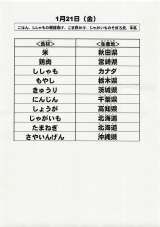 1月21日（金）
ごはん、ししゃもの磯辺揚げ、ごま酢和え、じゃがいものそぼろ煮、牛乳
＜食材＞ ＜生産地＞
米 秋田県
鶏肉 宮崎県
ししゃも カナダ
もやし 栃木県
きゅうり 茨城県
にんじん 千葉県
しょうが 高知県
じゃがいも 北海道
たまねぎ 北海道
さやいんげん 沖縄県